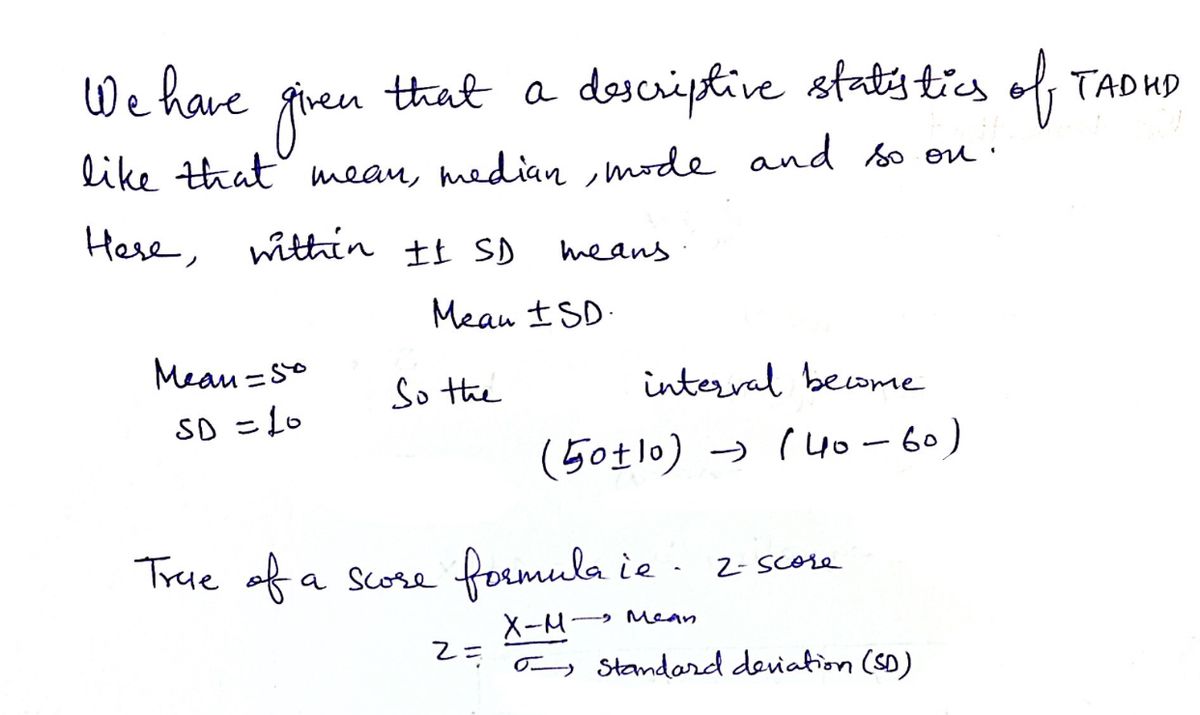 We have given that a descriptive statistics of TADHD
like that mean, median, mode and so on.
Here, within ±1 SD means.
Mean ± SD.
Mean = 50
SD = 10
So the interval become
(50±10) → (40 – 60)
True of a score formula ie. z-score
z = X-M → Mean
σ → Standard deviation (SD)